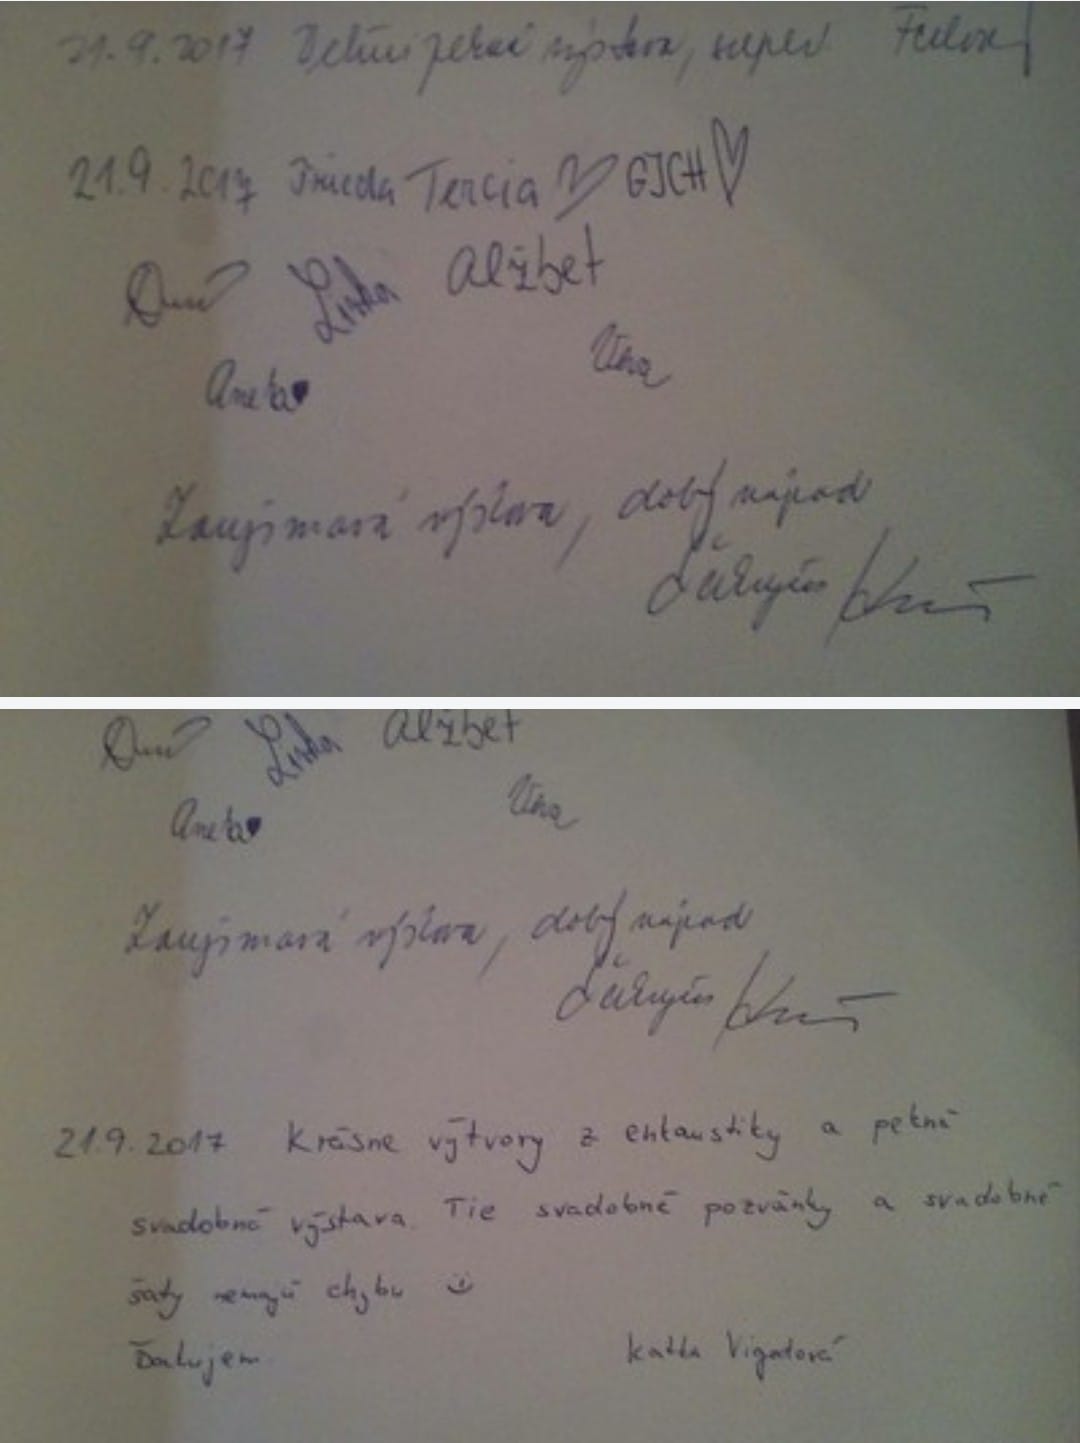 21.9.2017 Veľmi pekná výstava, super
21.9.2017 Trieda Tercia GJCH
Linda Alžbet
Aneta
Zaujímavá výstava, dobrý nápad
Ďakujem
Linda Alžbet
Aneta
Zaujímavá výstava, dobrý nápad
Ďakujem
21.9.2017 Krásne výtvory z enkaustiky a pekná
svadobná výstava. Tie svadobné pozvánky a svadobné
šaty nemajú chybu
Ďakujem Katka Vigaľová